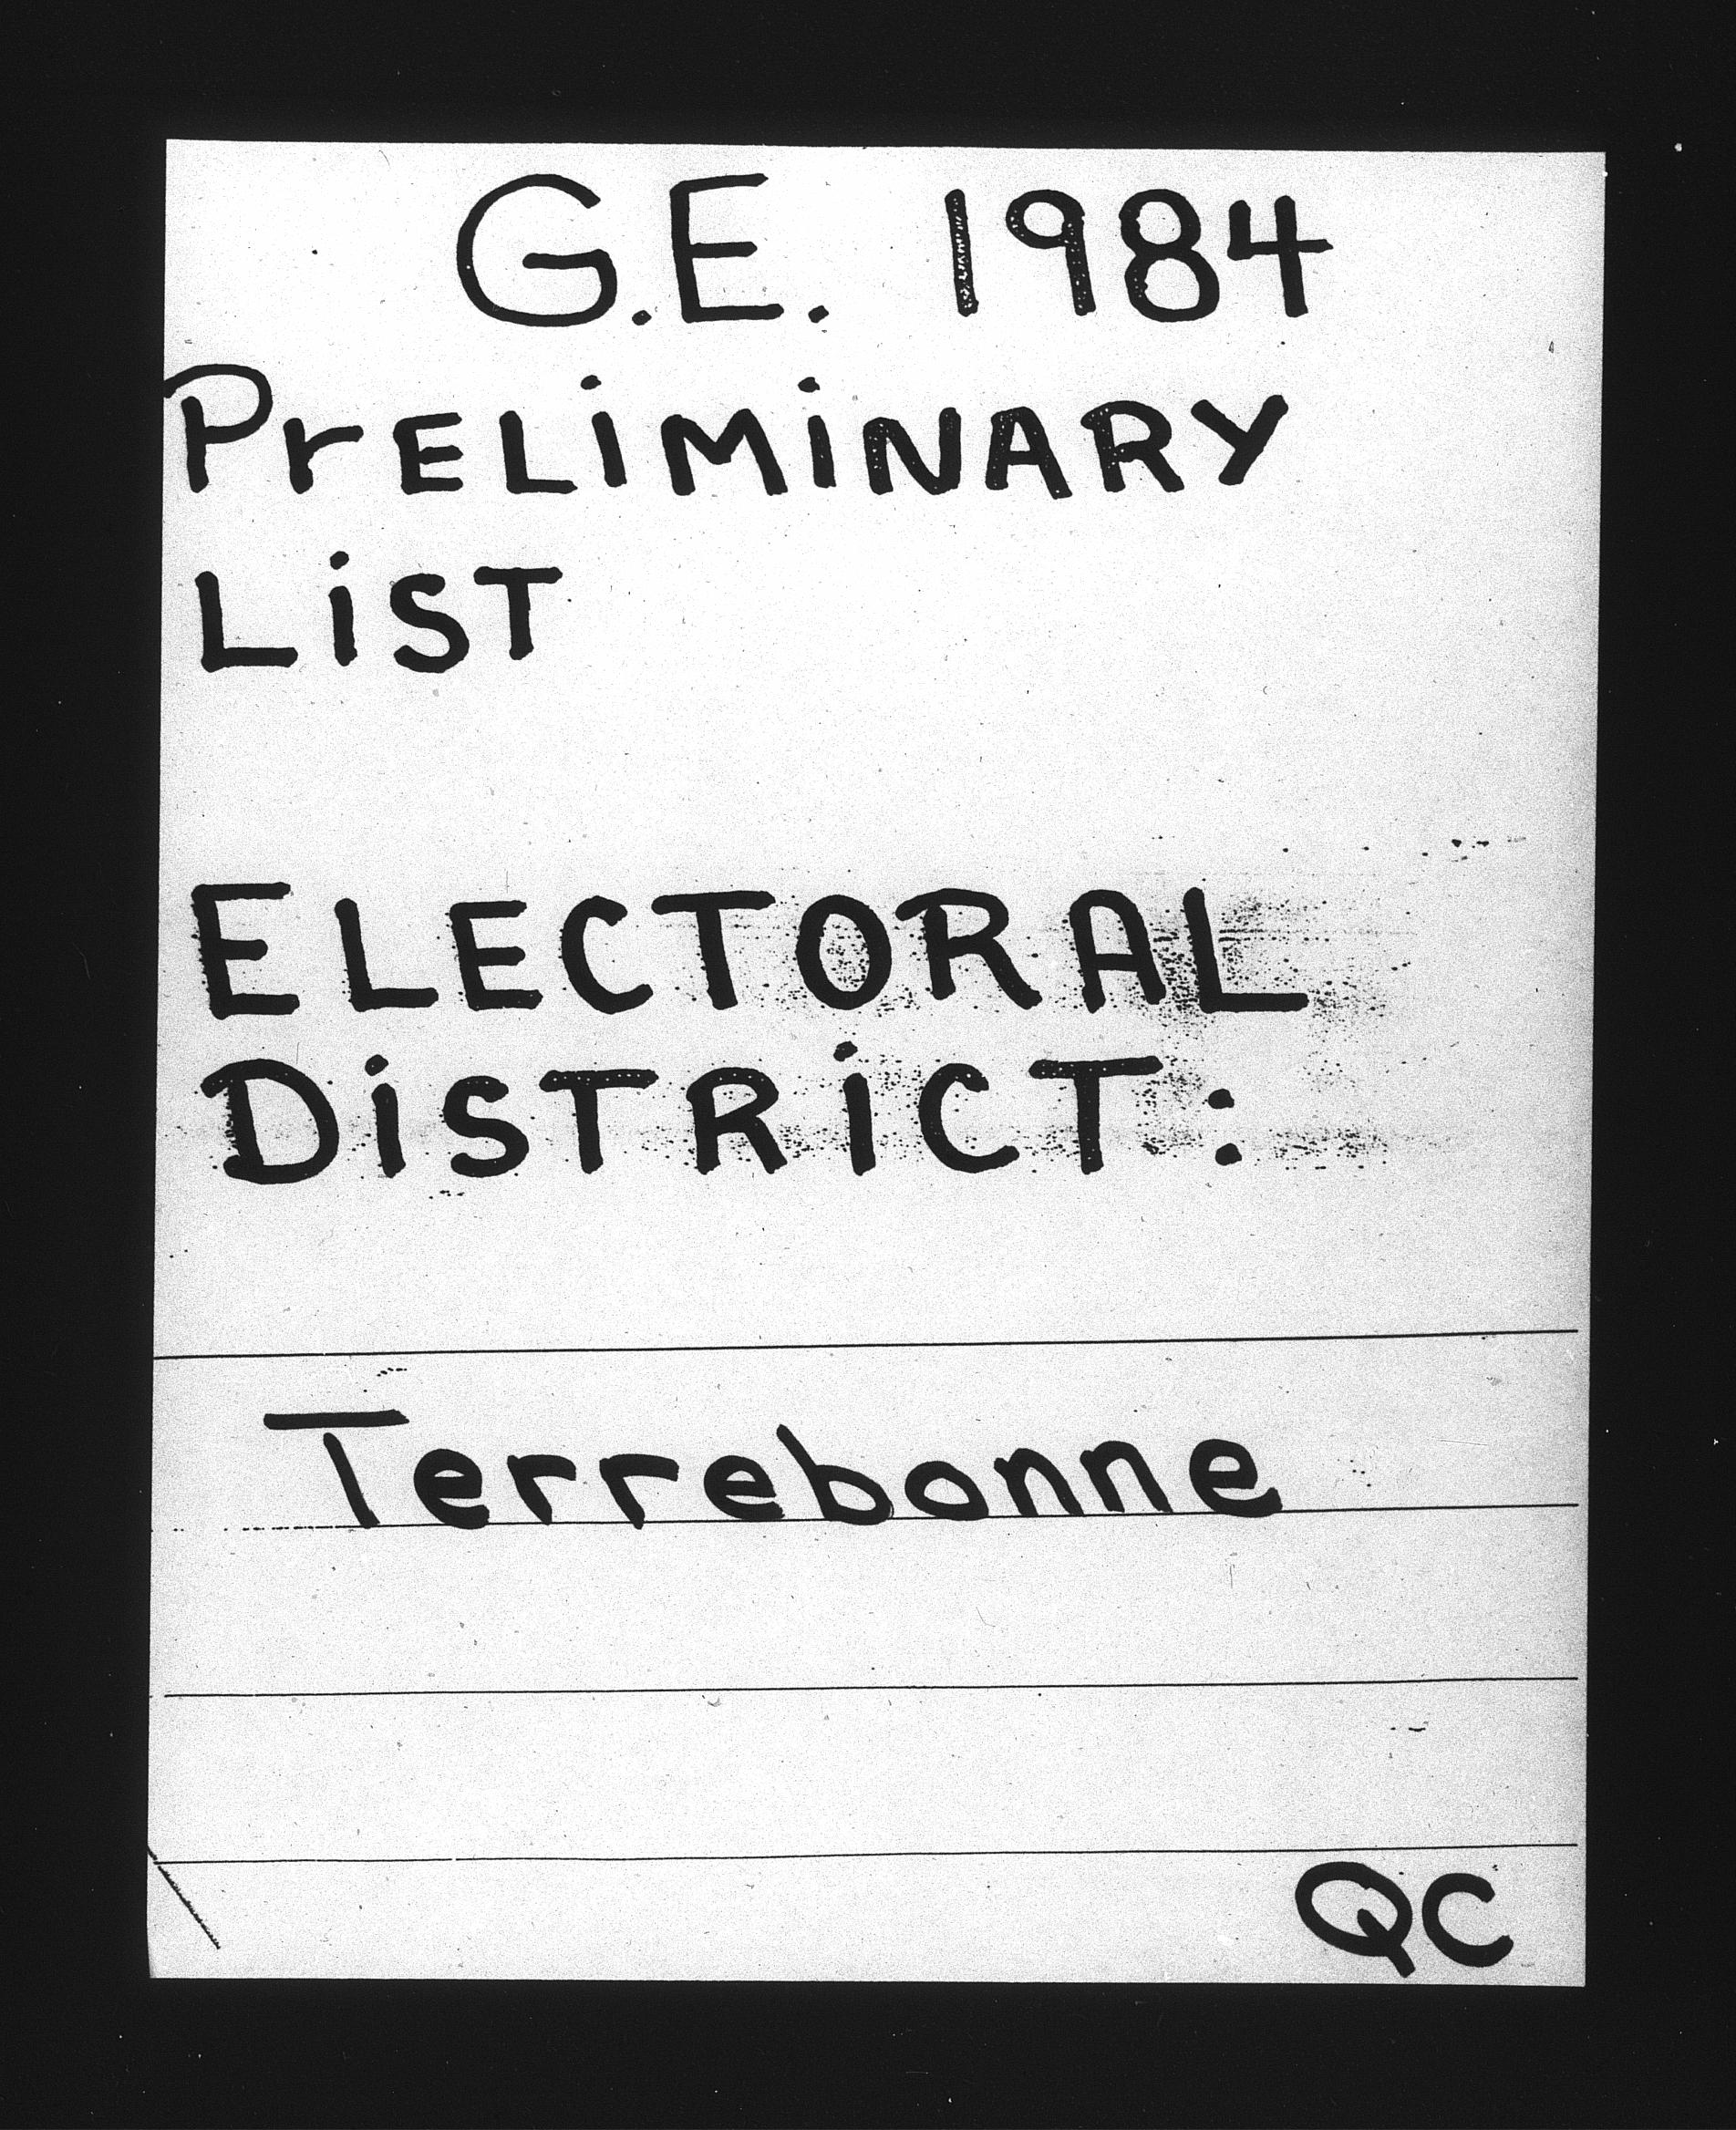 G.E. 1984
PrELiMiNARY
LiST
ELECTORAL
DiSTRiCT:
Terrebonne
QC